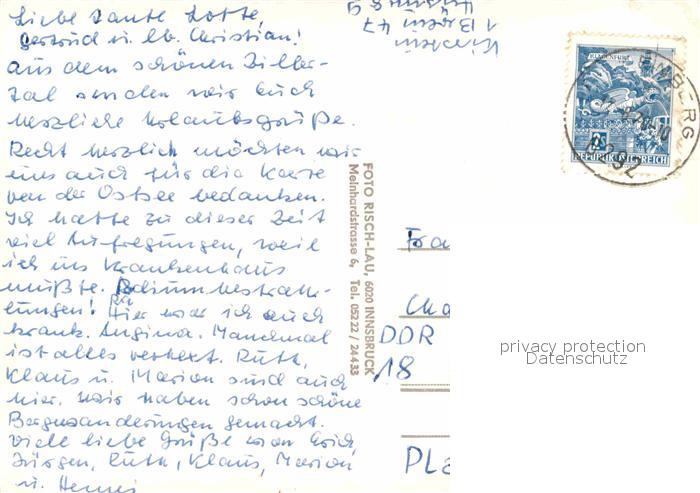 Liebe Tante Lotte,
Gertrud u. lb. Christian!
Aus dem schönen Ziller-
tal senden wir Euch
herzliche Urlaubsgrüße.
Recht herzlich möchten wir
uns auch für die Karte
von der Ostsee bedanken.
Ich hatte zu dieser Zeit
viel Aufregungen, weil
ich ins Krankenhaus
mußte. Radiumbestrah-
lungen! Hier war ich auch
krank. Angina. Manchmal
ist alles verhext. Ruth,
Klaus u. Marion sind auch
hier. Wir haben schon schöne
Bergwanderungen gemacht.
Viele liebe Grüße von Erich,
Jürgen, Ruth, Klaus, Marion
u.
1 Berlin 47
FOTO RISCH-LAU, 6020 INNSBRUCK
Meinhardstrasse 6, Tel. 05222 / 24433
KLAGENFURT
6S
REPUBLIK ÖSTERREICH
6292
Fra
Cha
DDR
18
PLa
privacy protection
Datenschutz